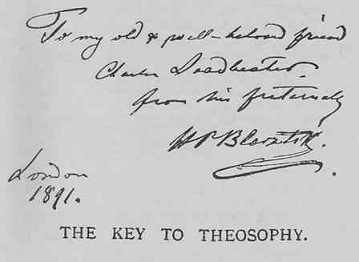 To my old & well-beloved friend
Charles Leadbeater.
from his fraternally
H P Blavatsky.
London
1891.
THE KEY TO THEOSOPHY.